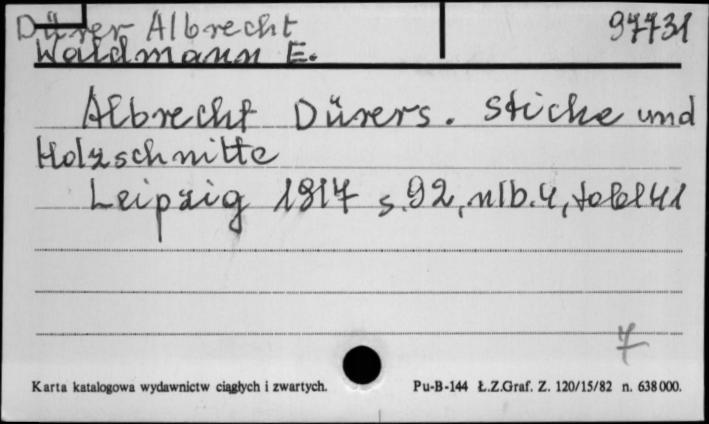 Dürer Albrecht 97731
Waldmann E.
Albrecht Dürers. Stiche und
Holzschnitte
Leipzig 1917 s. 92, nlb. 4, tabl 41
7
Karta katalogowa wydawnictw ciągłych i zwartych. Pu-B-144 Ł.Z.Graf. Z. 120/15/82 n. 638000.